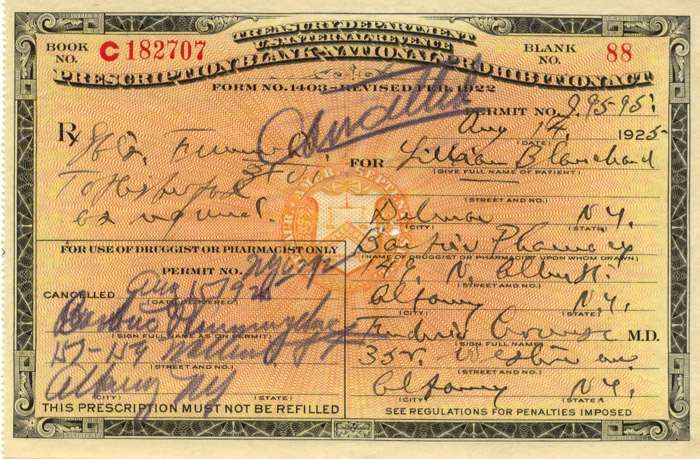 TREASURY DEPARTMENT
U.S. INTERNAL REVENUE
BOOK NO. C182707
BLANK NO. 88
PRESCRIPTION BLANK-NATIONAL PROHIBITION ACT
FORM NO. 1403-REVISED FEB. 1922
Cancelled
PERMIT NO.
Aug 14, 1925
(DATE)
Rx
FOR Lillian Blanchard
(GIVE FULL NAME OF PATIENT)
(STREET AND NO.)
as required.
Delmar N.Y.
(CITY) (STATE)
FOR USE OF DRUGGIST OR PHARMACIST ONLY
Pharmacy
(NAME OF DRUGGIST OR PHARMACIST UPON WHOM DRAWN)
PERMIT NO.
149 N.
(STREET AND NO.)
CANCELLED Aug 15 192
(DATE DELIVERED)
Albany N.Y.
(CITY) (STATE)
Pharmacy
(SIGN FULL NAME AS ON PERMIT)
M.D.
(SIGN FULL NAME)
(STREET AND NO.)
35 Western ave
(STREET AND NO.)
Albany NY
(CITY) (STATE)
Albany N.Y.
(CITY) (STATE)
THIS PRESCRIPTION MUST NOT BE REFILLED
SEE REGULATIONS FOR PENALTIES IMPOSED